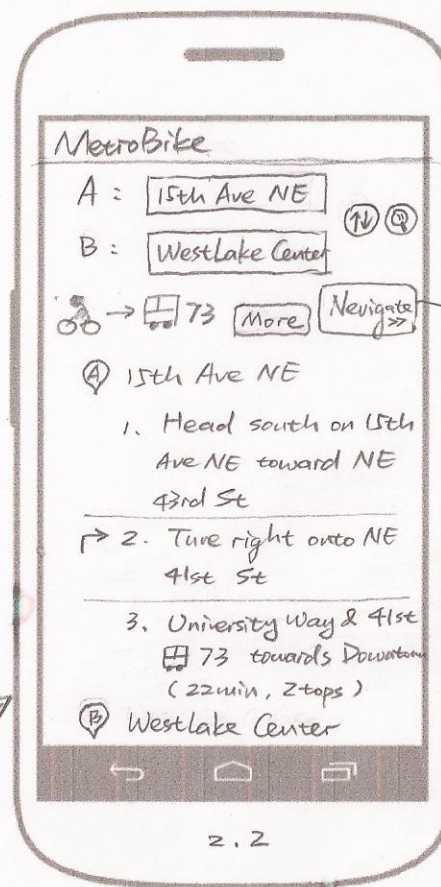 MetroBike
A : 15th Ave NE
B : WestLake Center
→ 73 More Nevigate >>
A 15th Ave NE
1. Head south on 15th
Ave NE toward NE
43rd St
2. Ture right onto NE
41st St
3. University Way & 41st
73 towards Downtown
(22min, 2tops)
B Westlake Center
2.2